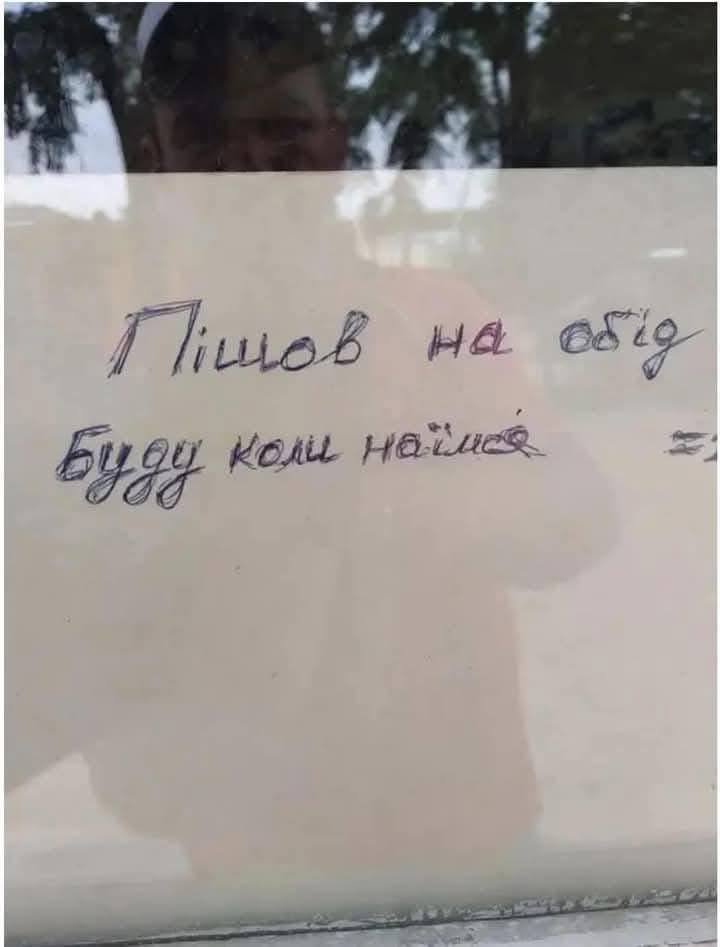 Пішов на обід
Буду коли наїмся =)